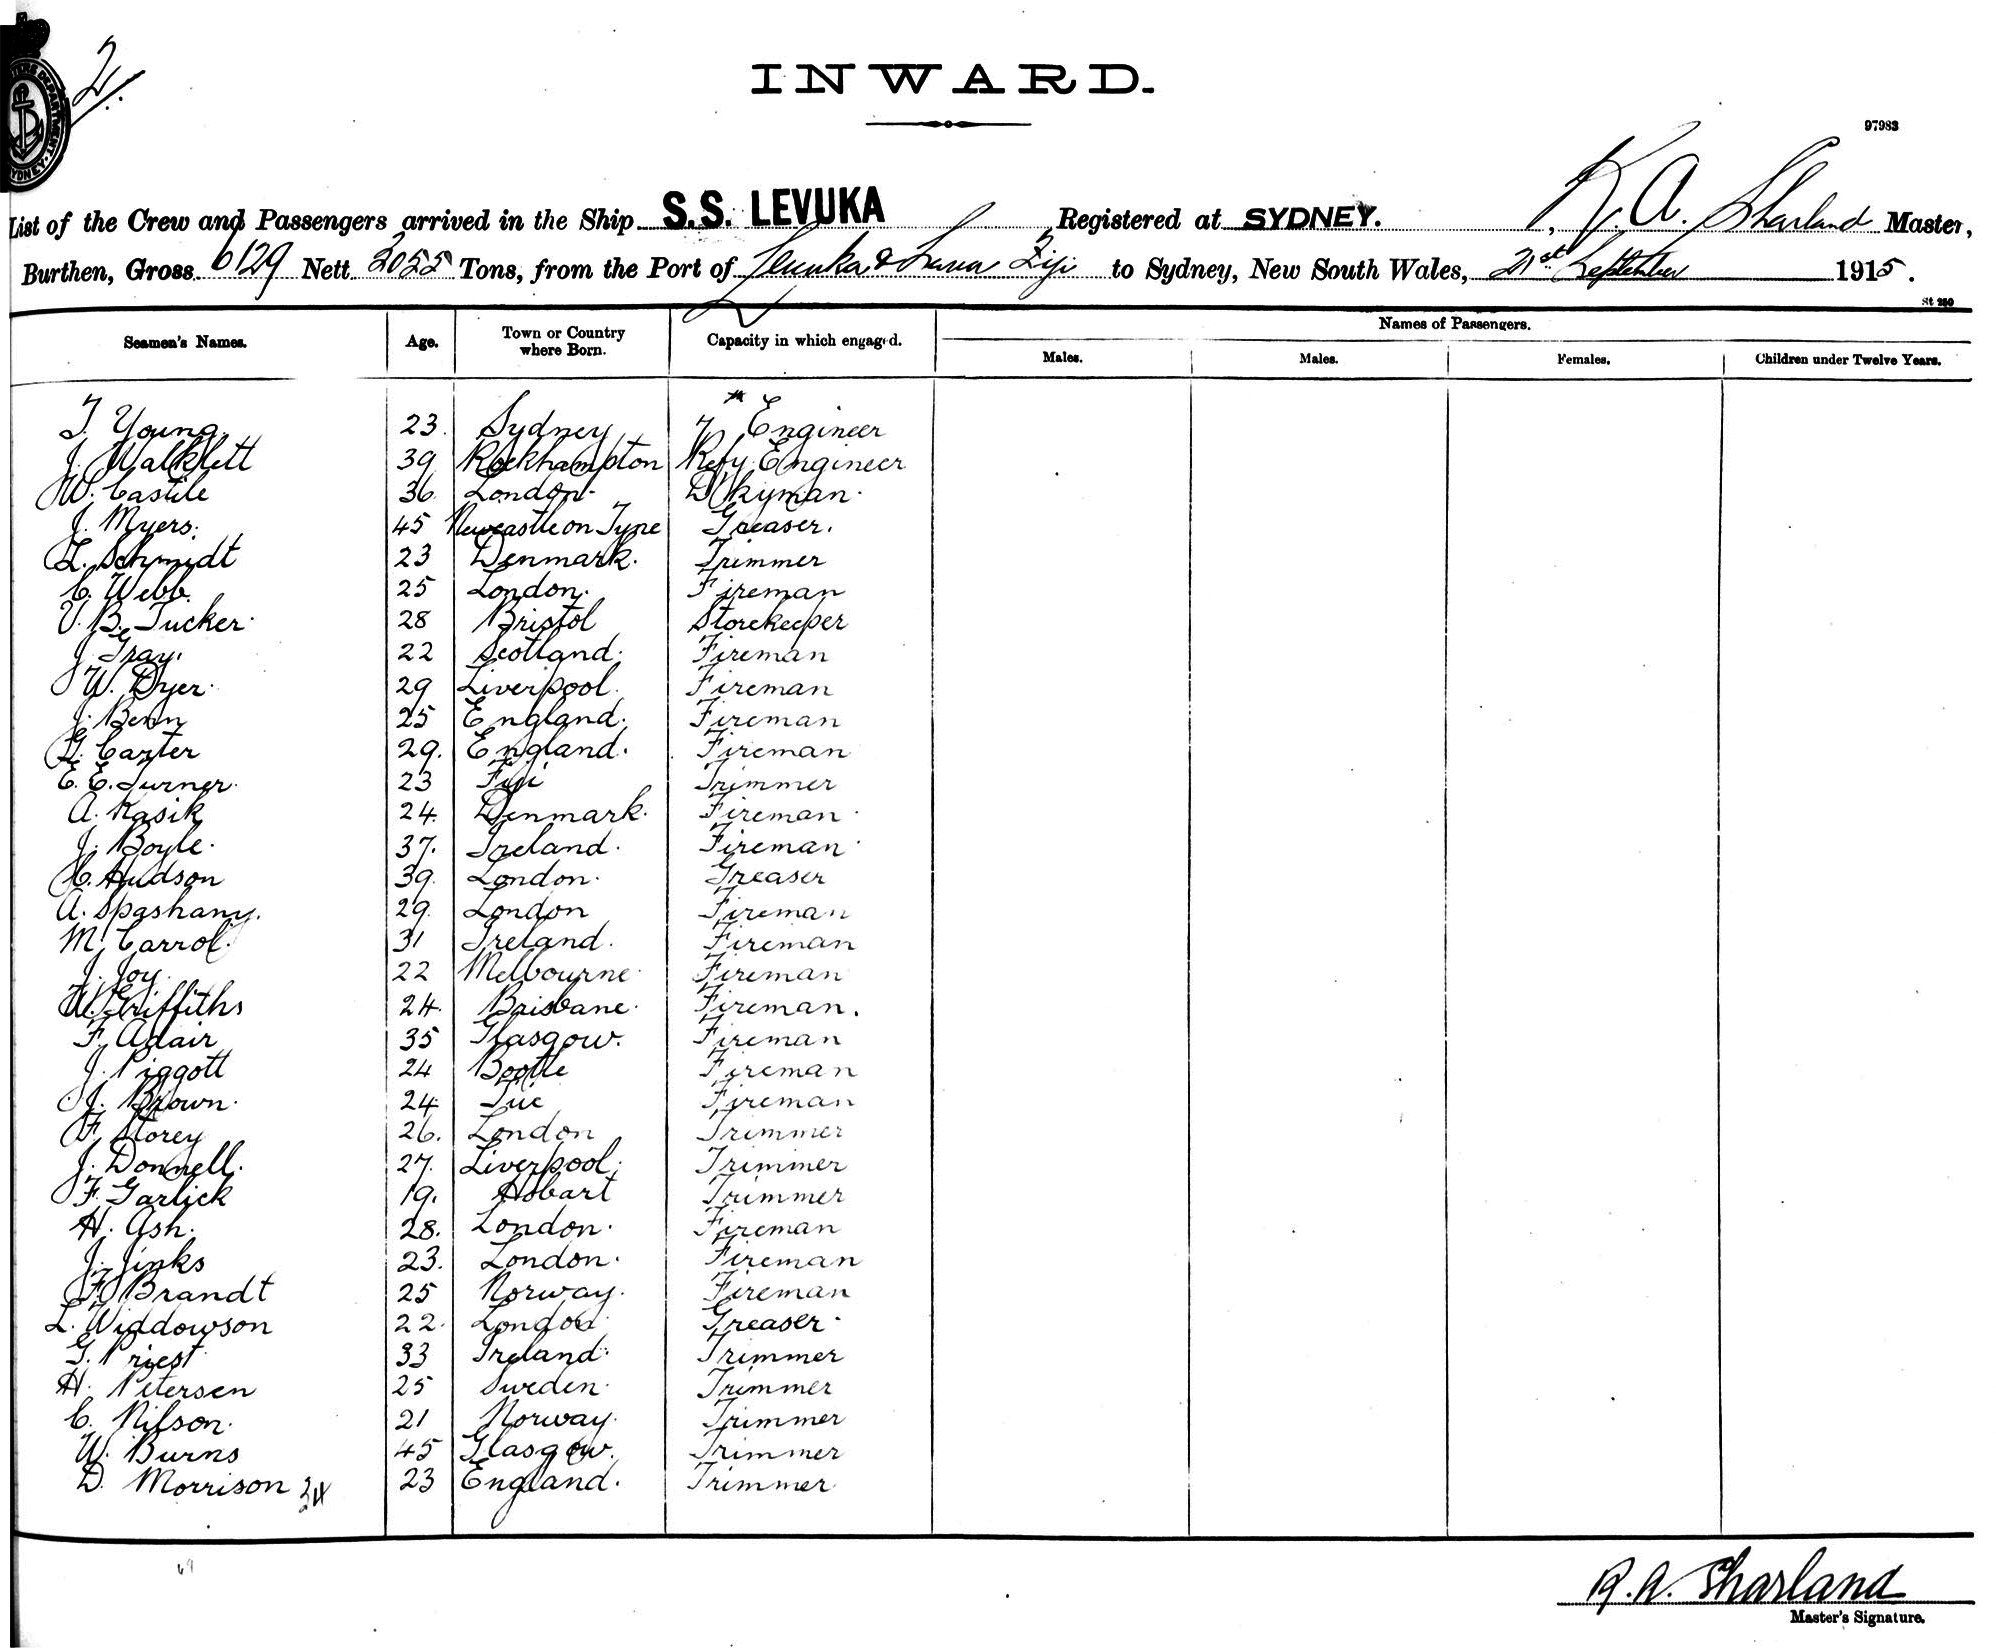 2
INWARD.
97983
List of the Crew and Passengers arrived in the Ship S.S. LEVUKA Registered at SYDNEY. R. A. Sharland Master,
Burthen, Gross 6129 Nett 3055 Tons, from the Port of Levuka & Suva Fiji to Sydney, New South Wales, 21st September 1915.
St 250
Seamen's Names. Age. Town or Country where Born. Capacity in which engaged. Names of Passengers.
Males. Males. Females. Children under Twelve Years.
T. Young. 23. Sydney Engineer
J. Walklett 39 Rockhampton Refy. Engineer
W. Castile 36. London. D'kyman.
J. Myers. 45 Newcastle on Tyne Greaser.
L. Schmidt 23 Denmark. Trimmer
C. Webb. 25 London. Fireman
V. B. Tucker. 28 Bristol Storekeeper
J. Gray. 22 Scotland. Fireman
W. Dyer. 29 Liverpool. Fireman
J. Benn 25 England. Fireman
G. Carter 29. England. Fireman
E. E. Turner. 23 Fiji Trimmer
A. Kasik 24. Denmark. Fireman
J. Boyle. 37. Ireland. Fireman
C. Hudson 39. London. Greaser
A. Spashany. 29. London Fireman
M. Carrol. 31 Ireland. Fireman
J. Joy. 22 Melbourne. Fireman
W. Griffiths 24. Brisbane. Fireman.
F. Adair 35 Glasgow. Fireman
J. Piggott 24 Bootle Fireman
J. Brown. 24. Fireman
F. Storey 26. London Trimmer
J. Donnell. 27. Liverpool. Trimmer
F. Garlick 19. Hobart Trimmer
H. Ash. 28. London. Fireman
J. Jinks 23. London. Fireman
F. Brandt 25 Norway. Fireman
L. Widdowson 22. London Greaser.
G. Priest 33 Ireland. Trimmer
H. Petersen 25 Sweden. Trimmer
C. Nilson. 21 Norway. Trimmer
W. Burns 45 Glasgow. Trimmer
D. Morrison 34 23 England. Trimmer
R. A. Sharland
Master's Signature.